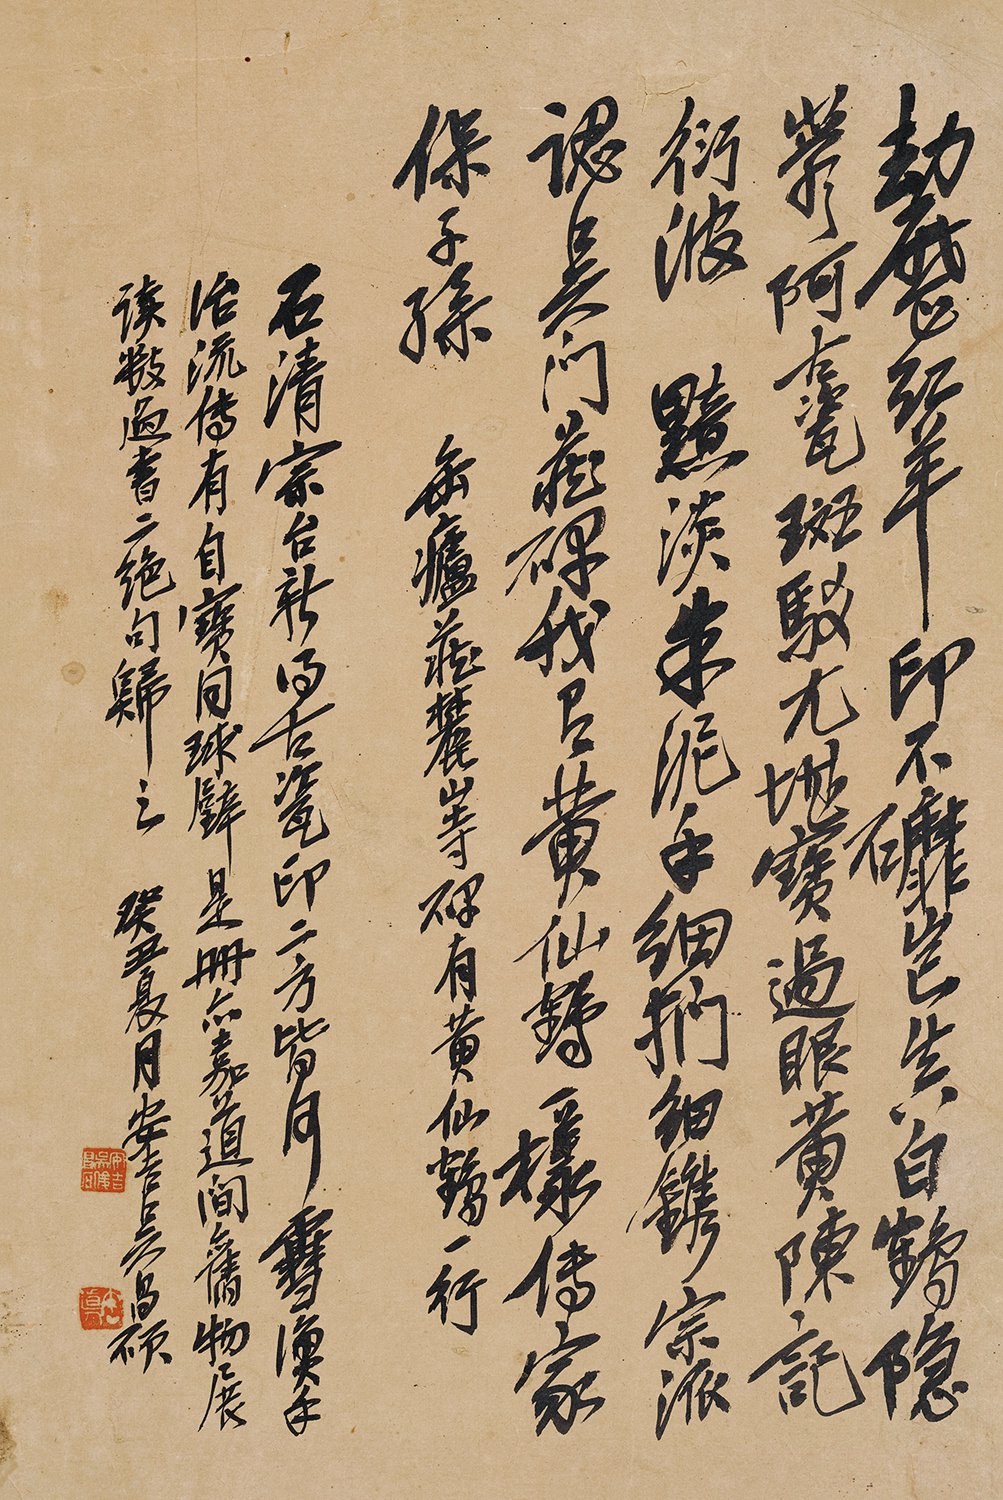 劫歷紅羊印不礳豈真白鶴隱
阿古瓷斑駁尤堪寶過眼黃陳記
衍波 黯淡朱泥手細捫細鐫宗派
認吳門藏碑我昌黃仙鶴一樣傳家
保子孫 缶廬藏麓山寺碑有黃仙鶴一行
石潛宗台新得古瓷印二方皆何雪漁手
治流傳有自寶同球璧是冊亦嘉道間舊物展
讀數過書二絕句歸之 癸丑夏月安吉吳昌碩